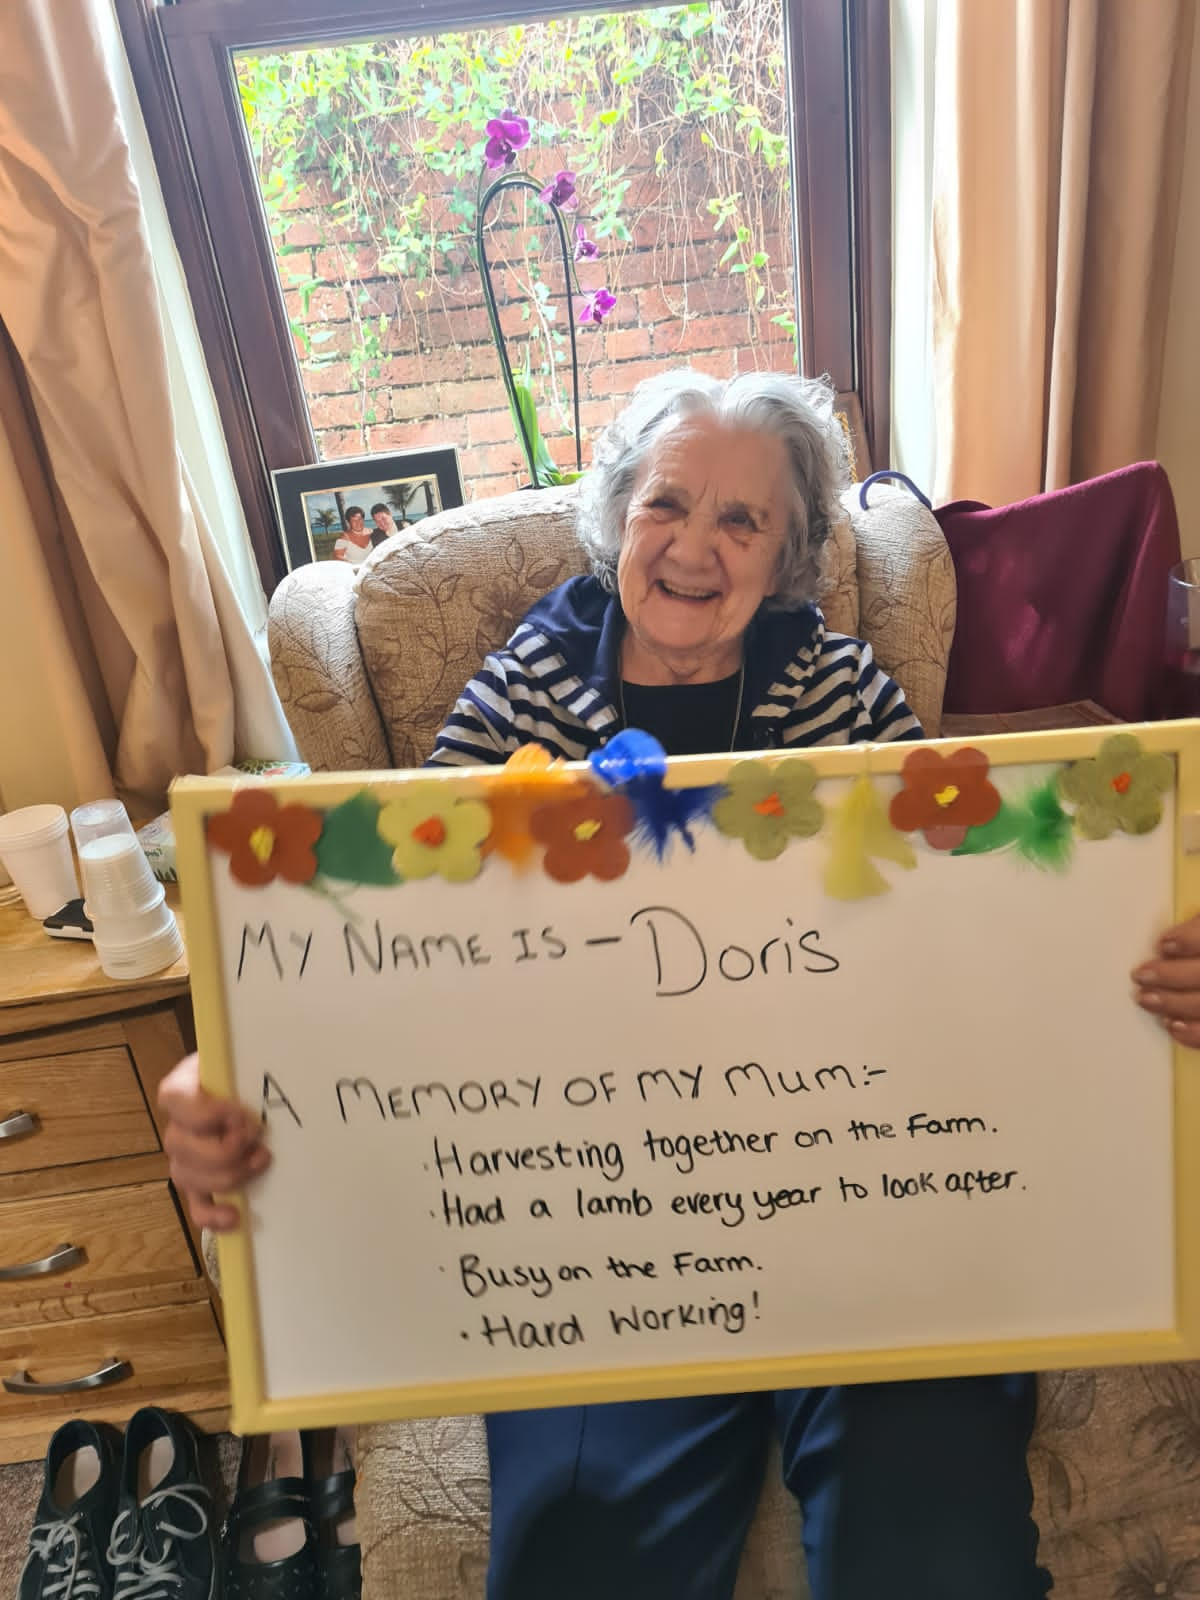 MY NAME IS - Doris
A MEMORY OF MY MUM:-
·Harvesting together on the Farm.
·Had a lamb every year to look after.
·Busy on the Farm.
·Hard Working!